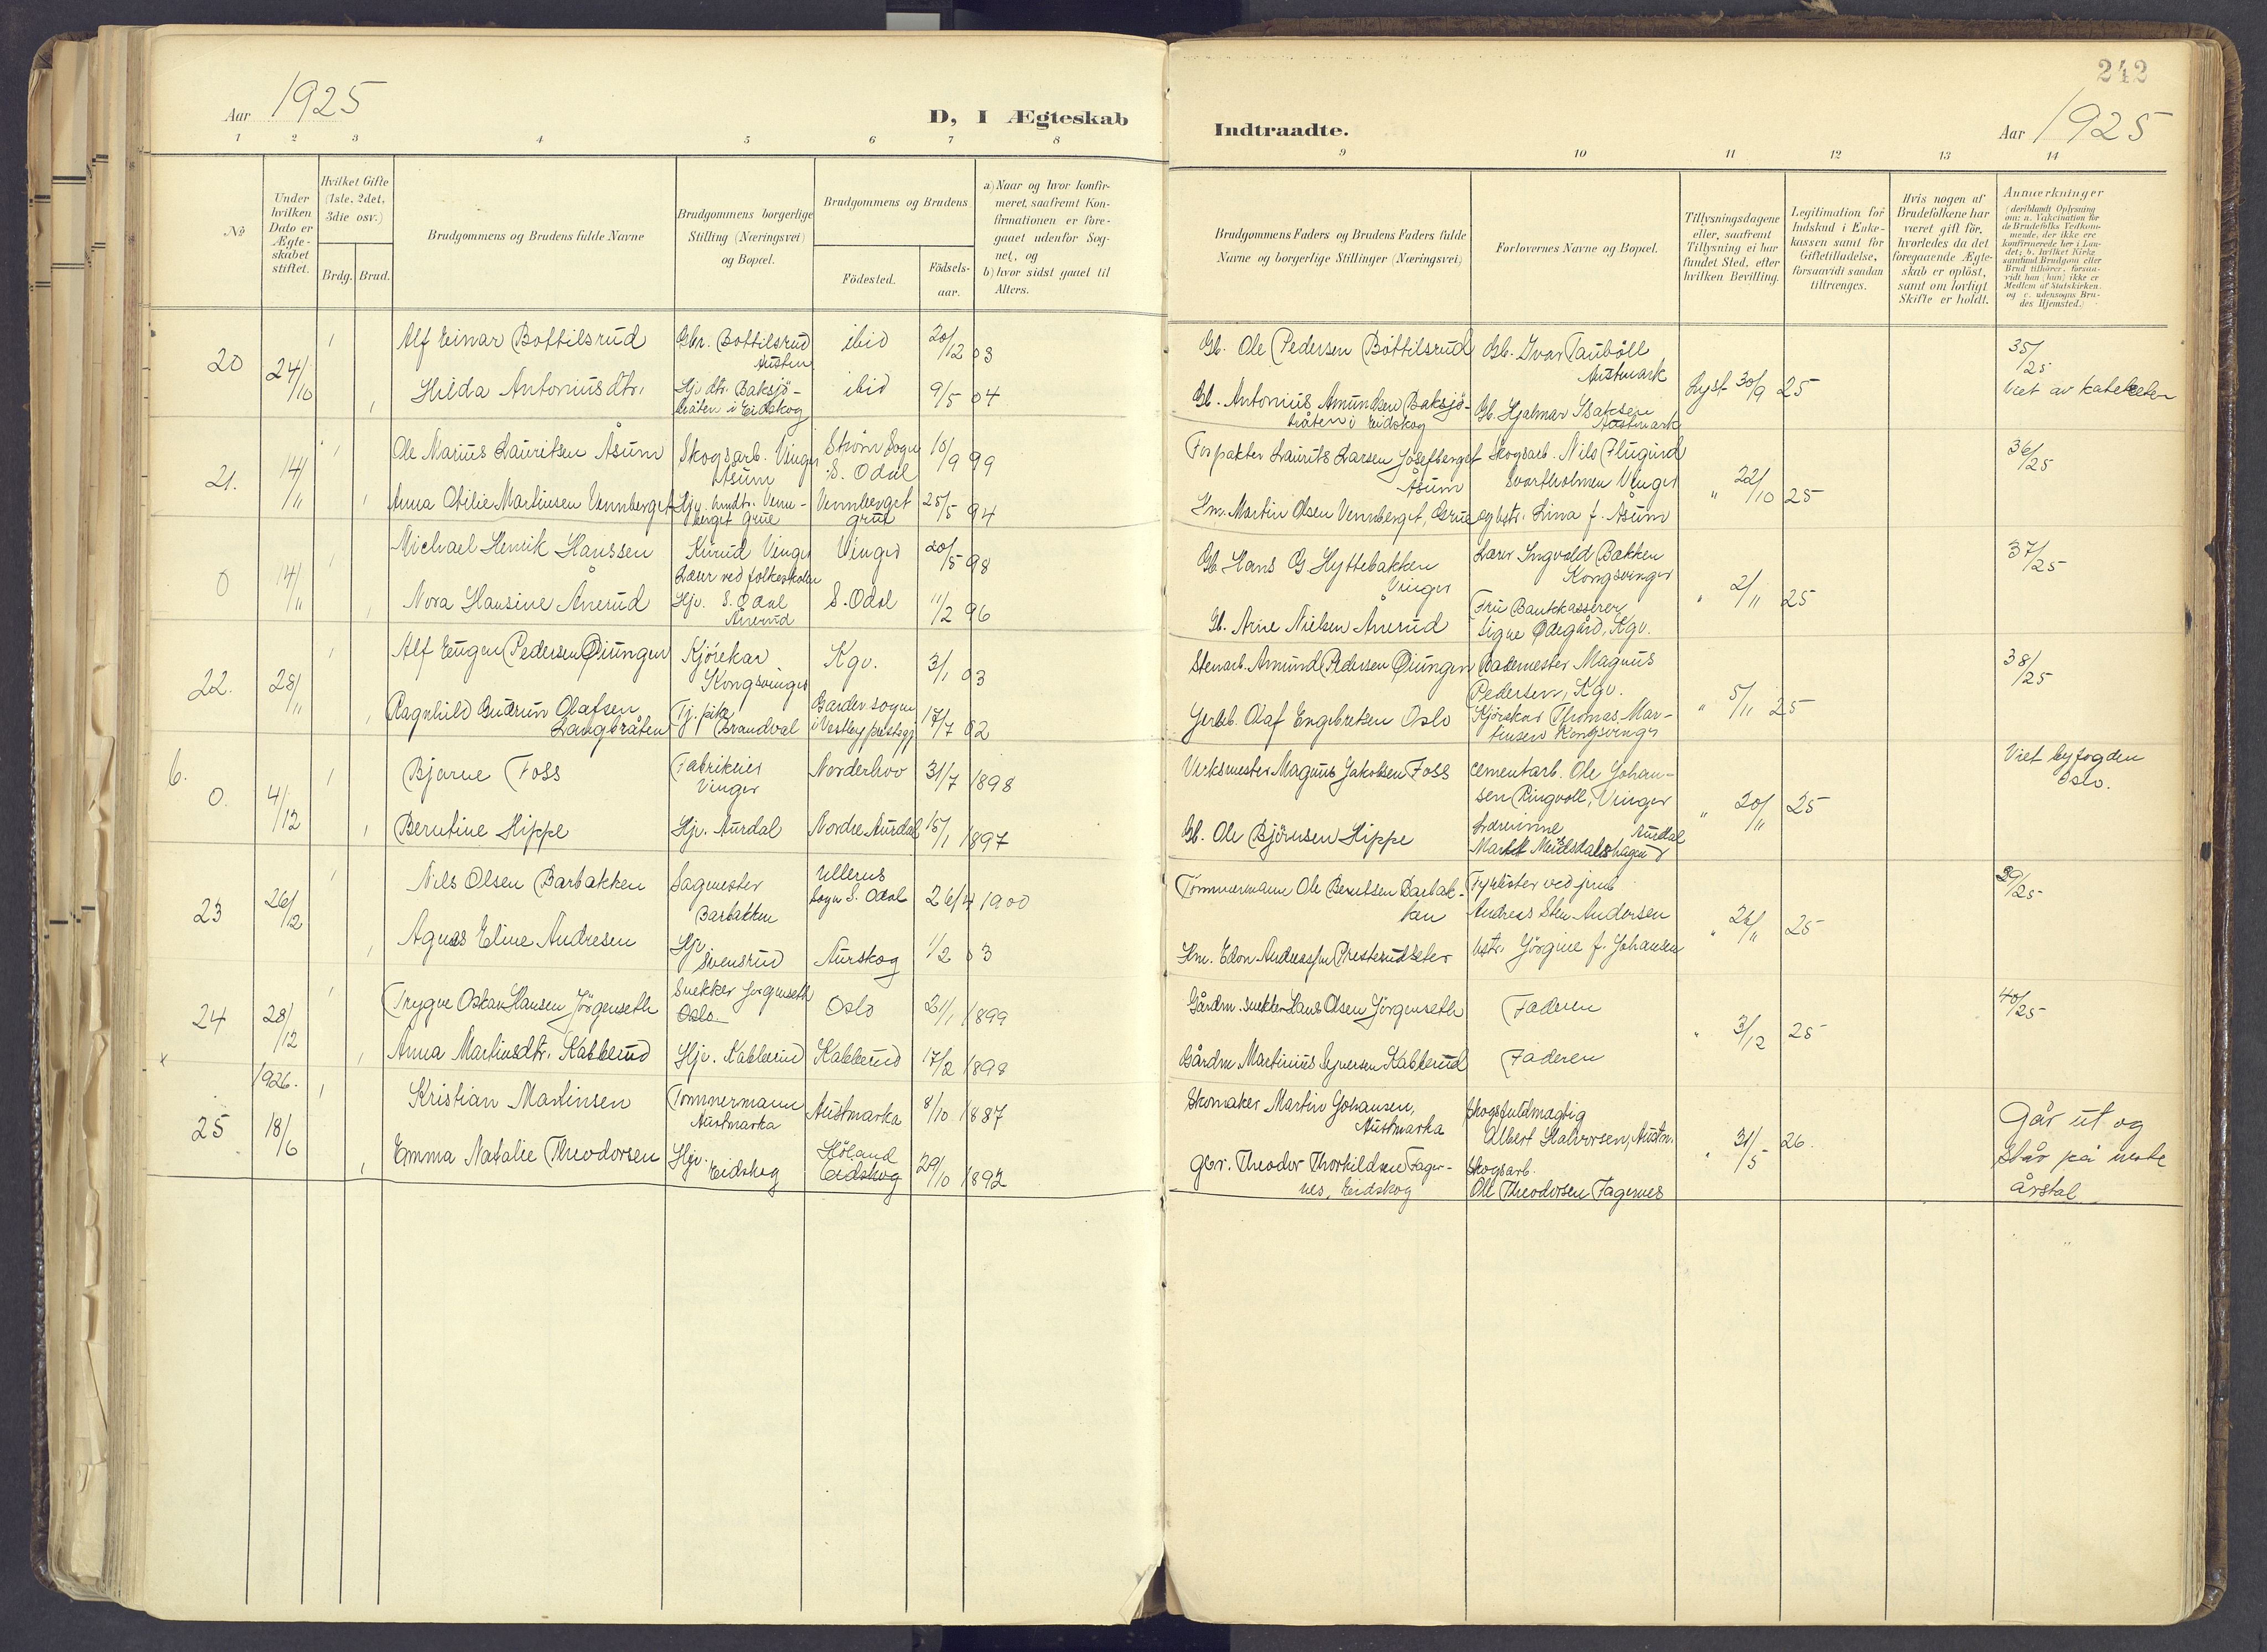 242
Aar 1925
D, I Ægteskab
Indtraadte.
Aar 1925
1 2 3 4 5 6 7 8 9 10 11 12 13 14
No
Under hvilken Dato er Ægteskabet stiftet.
Hvilket Gifte (1ste, 2det, 3die osv.)
Brdg. Brud.
Brudgommens og Brudens fulde Navne
Brudgommens borgerlige Stilling (Næringsvei) og Bopæl.
Brudgommens og Brudens
Födested.
Födsels-aar.
a) Naar og hvor konfir-
meret, saafremt Kon-
firmationen er fore-
gaaet udenfor Sog-
net, og
b) hvor sidst gaaet til
Alters.
Brudgommens Faders og Brudens Faders fulde
Navne og borgerlige Stillinger (Næringsvei)
Forlovernes Navne og Bopæl.
Tillysningsdagene
eller, saafremt
Tillysning ei har
fundet Sted, efter
hvilken Bevilling.
Legitimation for
Indskud i Enke-
kassen samt for
Giftetilladelse,
forsaavidt saadan
tiltrænges.
Hvis nogen af
Brudefolkene har
været gift för,
hvorledes da det
foregaaende Ægte-
skab er oplöst,
samt om lovligt
Skifte er holdt.
Anmærkninger
(deriblandt Oplysning
om: a. Vakcination for
de Brudefolks Vedkom-
mende, der ikke ere
konfirmerede her i Lan-
det; b. hvilket Kirke-
samfund Brudgom eller
Brud tilhører, forsaa-
vidt han (hun) ikke er
Medlem af Statskirken,
og c. udensogns Bru-
des Hjemsted.)
20 24/10 1 Alf Einar Bottilsrud Gbr. Bottilsrud Austm ibid 20/12 03 Gb. Ole Pedersen Bottilsrud Gb. Ivar Tauböll Austmark 35/25
1 Hilda Antoniusdtr. Hjv. dtr. Baksjö-bråten i Eidskog ibid 9/5 04 Gb. Antonius Amundsen Baksjö-bråten i Eidskog Gb. Hjalmar Isaksen Austmark Lyst 30/9 25 Viet av kateketen
21. 14/11 1 Ole Marius Lauritsen Åsum Skogsarb. Vinger Åsum Ström Sogn S. Odal 10/9 99 Forpakter Laurits Larsen Josefberget Åsum Skogsarb. Nils Flugind Svartholmen Vinger 36/25
1 Anna Otilie Martinsen Vennberget Hjv. hmdtr. Venn-berget Grue Vennberget Grue 25/5 94 Hm. Martin Olsen Vennberget, Grue og hstr. Lina f. Åsum " 22/10 25
0 14/11 1 Michael Henrik Hanssen Kurud Vinger Lærer ved folkeskolen Vinger 20/5 98 Gb. Hans G Hyttebakken Vinger Lærer Ingvald Bakken Kongsvinger 37/25
1 Nora Hansine Ånerud Hjv. S. Odal Ånerud S. Odal 11/2 96 Gb. Arne Nielsen Ånerud Fru Bankkasserer Signe Ødegård, Kgv. " 2/11 25
22. 28/11 1 Alf Eugen Pedersen Øiungen Kjörekar Kongsvinger Kgv. 3/1 03 Stenarb. Amund Pedersen Øiungen Bademester Magnus Pedersen, Kgv. 38/25
1 Ragnhild Gudrun Olafsen Langbråten Tj. pike Brandval Garder sogn i Vestby prestegj 17/7 02 Jerbb. Olaf Engebretsen Oslo Kjörekar Thomas Mar-tinsen Kongsvinger " 5/11 25
b. 0. 4/12 1 Bjarne Foss Fabrikeier Vinger Norderhov 31/7 1898 Verksmester Magnus Jakobsen Foss cementarb. Ole Johan-sen Ringvoll, Vinger Viet byfogden Oslo.
1 Berntine Hippe Hjv. Aurdal Nordre Aurdal 15/1 1897 Gb. Ole Björnsen Hippe Lærerinne Aurdal " 20/11 25
23 26/12 1 Nils Olsen Barbakken Sagmester Barbakken Ullerns Sogn S. Odal 26/4 1900 Tömmermann Ole Berntsen Barbak-ken Fyrböter ved jernb Andreas Sten Andersen 39/25
1 Agnes Eline Andresen Hjv. Svensrud Aurskog 1/2 03 Hm. Edon Andreassen Presterudseter hstr. Jörgine f. Johansen " 26/11 25
24 28/12 1 Trygve Oskar Hansen Jörgenseth Snekker Jörgenseth Oslo Oslo 21/1 1899 Gårdm. snekker Hans Olsen Jörgenseth Faderen 40/25
1 Anna Martinsdtr. Kabberud Hjv. Kabberud Kabberud 17/2 1898 Gårdm. Martinius Syversen Kabberud Faderen " 3/12 25
1926.
25 18/6 1 Kristian Martinsen Tömmermann Austmarka Austmarka 8/10 1887 Skomaker Martin Johansen, Austmarka Skogsfuldmægtig Albert Halvorsen, Austm. Går ut og
1 Emma Natalie Theodorsen Hjv. Eidskog Höland Eidskog 29/10 1892 Gbr. Theodor Thorkildsen Fager-nes, Eidskog Skogsarb. Ole Theodorsen Fagernes " 31/5 26. står på neste årstal